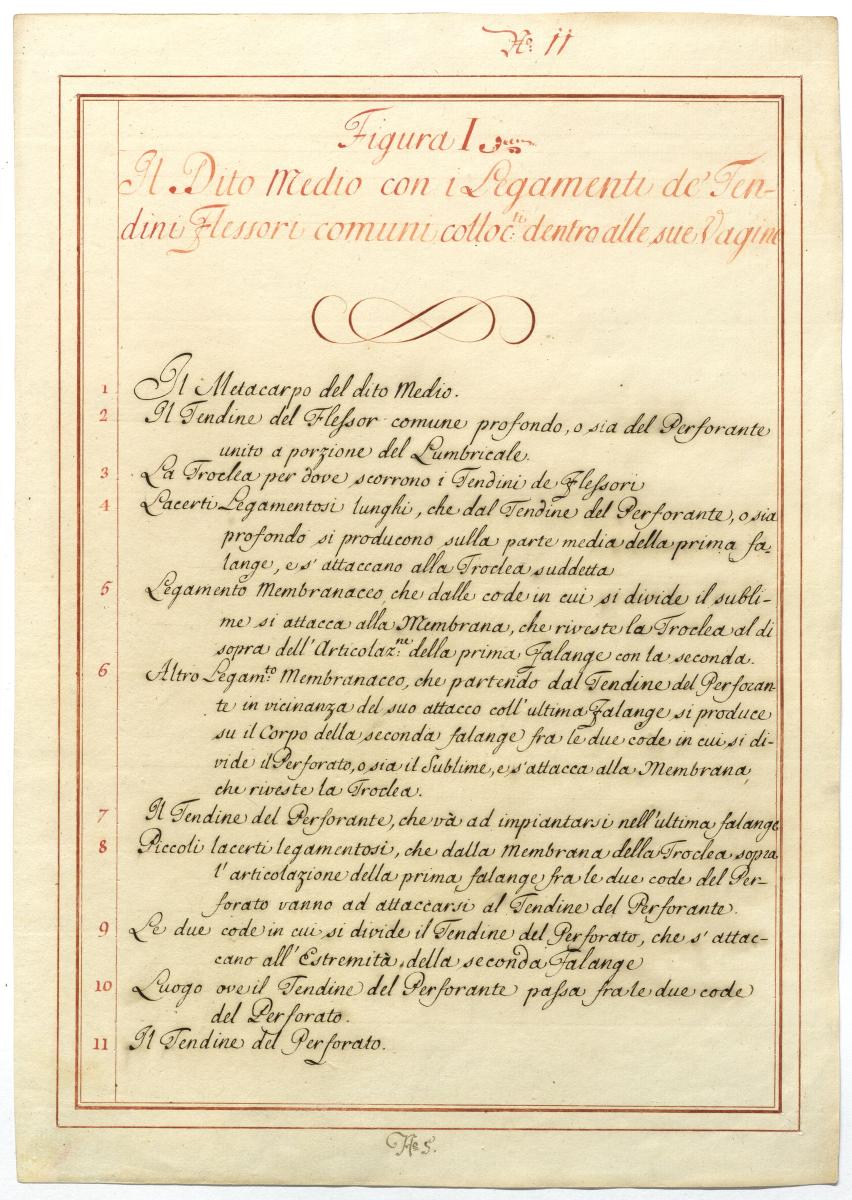 N.º 11
Figura I
Il Dito Medio con i Legamenti de' Ten-
dini Flessori comuni colloc:ti dentro alle sue Vagine
1 Il Metacarpo del dito Medio.
2 Il Tendine del Flessor comune profondo, o sia del Perforante
unito a porzione del Lumbricale.
3 La Troclea per dove scorrono i Tendini de Flessori
4 Lacerti Legamentosi lunghi, che dal Tendine del Perforante, o sia
profondo si producono sulla parte media della prima fa-
lange, e s' attaccano alla Troclea suddetta
5 Legamento Membranaceo, che dalle code in cui si divide il subli-
me si attacca alla Membrana, che riveste la Troclea al di
sopra dell'Articolaz:ne della prima Falange con la seconda.
6 Altro Legam:to Membranaceo, che partendo dal Tendine del Perforan-
te in vicinanza del suo attacco coll'ultima Falange si produce
su il Corpo della seconda falange fra le due code in cui si di-
vide il Perforato, o sia il Sublime, e s'attacca alla Membrana,
che riveste la Troclea.
7 Il Tendine del Perforante, che và ad impiantarsi nell'ultima falange
8 Piccoli lacerti legamentosi, che dalla Membrana della Troclea sopra
l'articolazione della prima falange fra le due code del Per-
forato vanno ad attaccarsi al Tendine del Perforante.
9 Le due code in cui si divide il Tendine del Perforato, che s'attac-
cano all'Estremità della seconda Falange
10 Luogo ove il Tendine del Perforante passa fra le due code
del Perforato.
11 Il Tendine del Perforato.
N.º 5.